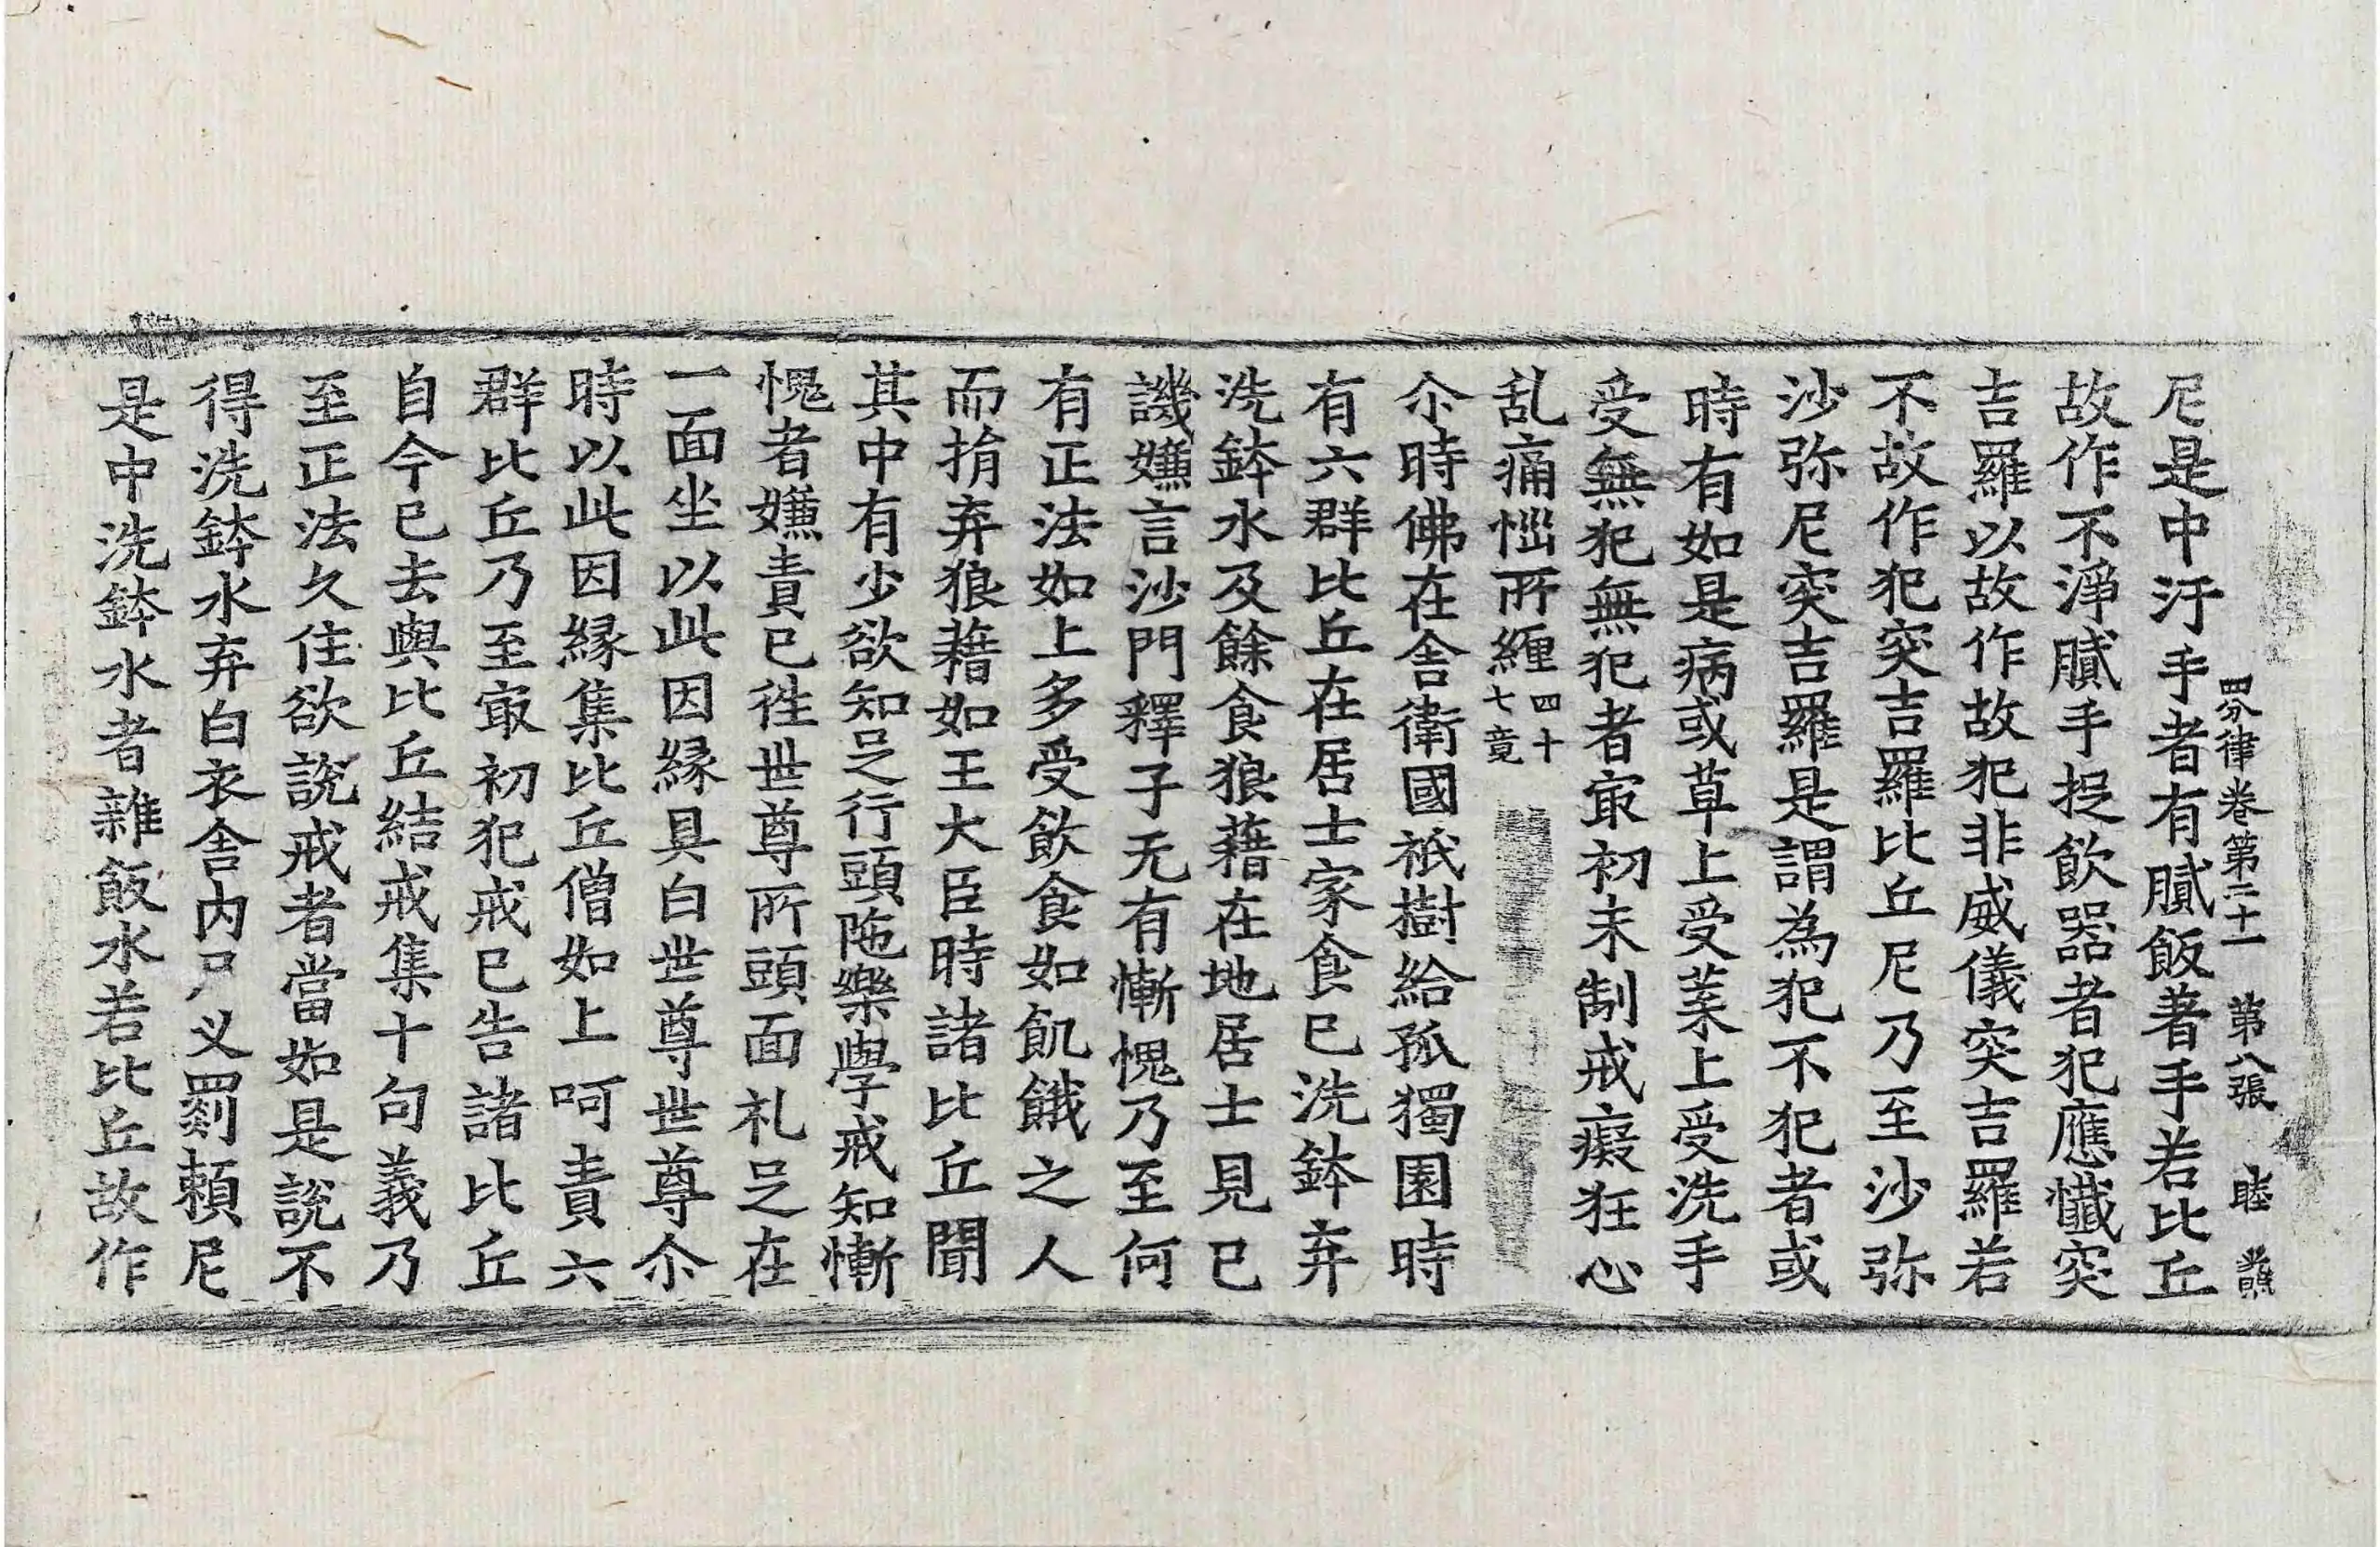 四分律卷第二十一 第八張 睦
尼是中汙手者有膩飯著手若比丘
故作不淨膩手捉飲器者犯應懺突
吉羅以故作故犯非威儀突吉羅若
不故作犯突吉羅比丘尼乃至沙弥
沙弥尼突吉羅是謂為犯不犯者或
時有如是病或草上受葉上受洗手
受無犯無犯者㝡初未制戒癡狂心
乱痛惱所纏四十七竟
尒時佛在舍衛國祇樹給孤獨園時
有六群比丘在居士家食已洗鉢弃
洗鉢水及餘食狼藉在地居士見已
譏嫌言沙門釋子无有慚愧乃至何
有正法如上多受飲食如飢餓之人
而捐弃狼藉如王大臣時諸比丘聞
其中有少欲知足行頭陁樂學戒知慚
愧者嫌責已徃世尊所頭面礼足在
一面坐以此因緣具白世尊世尊尒
時以此因緣集比丘僧如上呵責六
群比丘乃至㝡初犯戒已告諸比丘
自今已去與比丘結戒集十句義乃
至正法久住欲說戒者當如是說不
得洗鉢水弃白衣舍內尸叉罽賴尼
是中洗鉢水者雜飯水若比丘故作